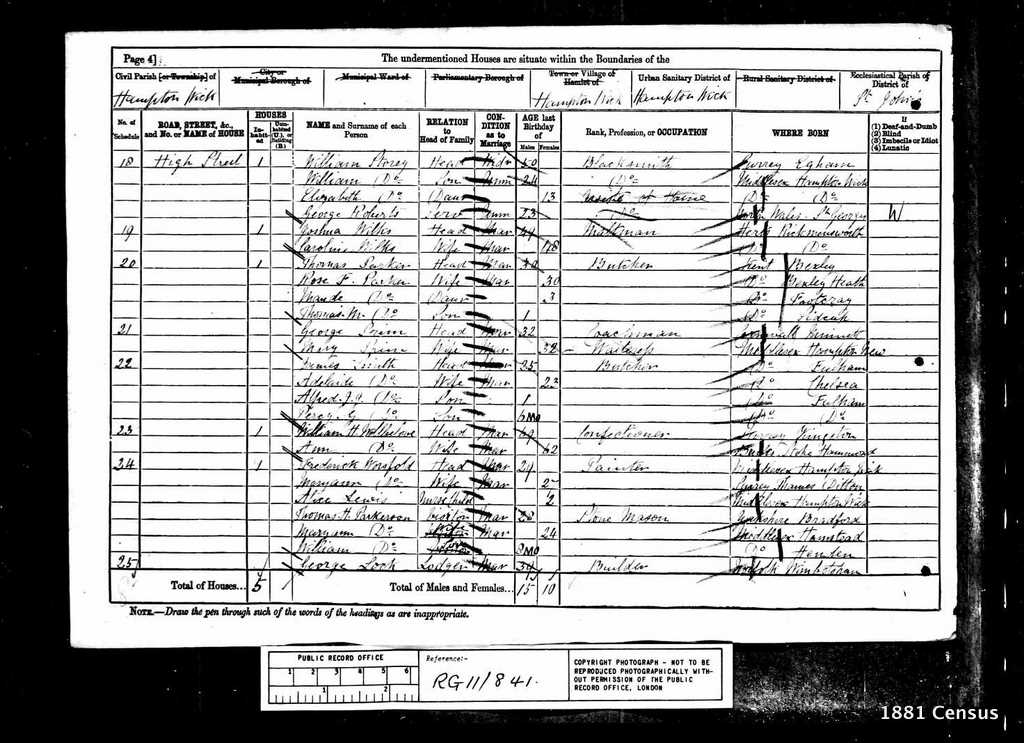 Page 4]
The undermentioned Houses are situate within the Boundaries of the
Civil Parish [or Township] of
City or Municipal Borough of
Municipal Ward of
Parliamentary Borough of
Town or Village of Hamlet of
Urban Sanitary District of
Rural Sanitary District of
Ecclesiastical Parish of District of
Hampton Wick Hampton Wick Hampton Wick St John's
No. of Schedule
ROAD, STREET, &c., and No. or NAME of HOUSE
HOUSES
Inhabited
Uninhabited (U.), or Building (B.)
NAME and Surname of each Person
RELATION to Head of Family
CONDITION as to Marriage
AGE last Birthday of
Males Females
Rank, Profession, or OCCUPATION
WHERE BORN
If
(1) Deaf-and-Dumb
(2) Blind
(3) Imbecile or Idiot
(4) Lunatic
18 High Street 1 William Storey Head 50 Blacksmith Surrey Egham
William Do Son Unm 24 Do Middlesex Hampton Wick
Elizabeth Do Daur 13 Do Do
George Roberts Serv Unm 23 Do North Wales St Georges W
19 1 Joshua Wilks Head Mar Maltman Herts Rickmansworth
Caroline Wilks Wife Mar Do Do
20 1 Thomas Parker Head Mar Butcher Kent Bexley
Rose F. Parker Wife Mar 30 Do Bexley Heath
Maude Do Daur 3 Do Footscray
Thomas M. Do Son 1 Do Sidcup
21 George Prim Head Mar 32 Coachman Cornwall
Mary Prim Wife Mar 32 Waitress Middlesex Hampton
22 James Head Mar 25 Butcher Do Fulham
Adelaide Do Wife Mar 22 Do Chelsea
Alfred J.G. Do Son 1 Do Fulham
Percy G Do Son 6 Mo Do Do
23 1 William H. Head Mar 69 Confectioner Surrey Kingston
Ann Do Wife Mar 62 Bucks Stoke Hammond
24 1 Frederick Worsfold Head Mar 29 Painter Middlesex Hampton Wick
Maryann Do Wife Mar Surrey Thames Ditton
Alice Lewis Nurse Child 2 Middlesex Hampton Wick
Thomas H. Parkerson Visitor Mar 28 Stone Mason Yorkshire Bradford
Maryann Do Wife Mar 24 Middlesex Hamstead
William Do Son 8 Mo Do Hendon
25 George Lock Lodger Mar 34 Builder Norfolk
Total of Houses... 5
Total of Males and Females... 15 10
NOTE.—Draw the pen through such of the words of the headings as are inappropriate.
PUBLIC RECORD OFFICE
1 2 3 4 5 6
1 2
Reference:-
RG 11/841.
COPYRIGHT PHOTOGRAPH - NOT TO BE
REPRODUCED PHOTOGRAPHICALLY WITH-
OUT PERMISSION OF THE PUBLIC
RECORD OFFICE, LONDON
1881 Census